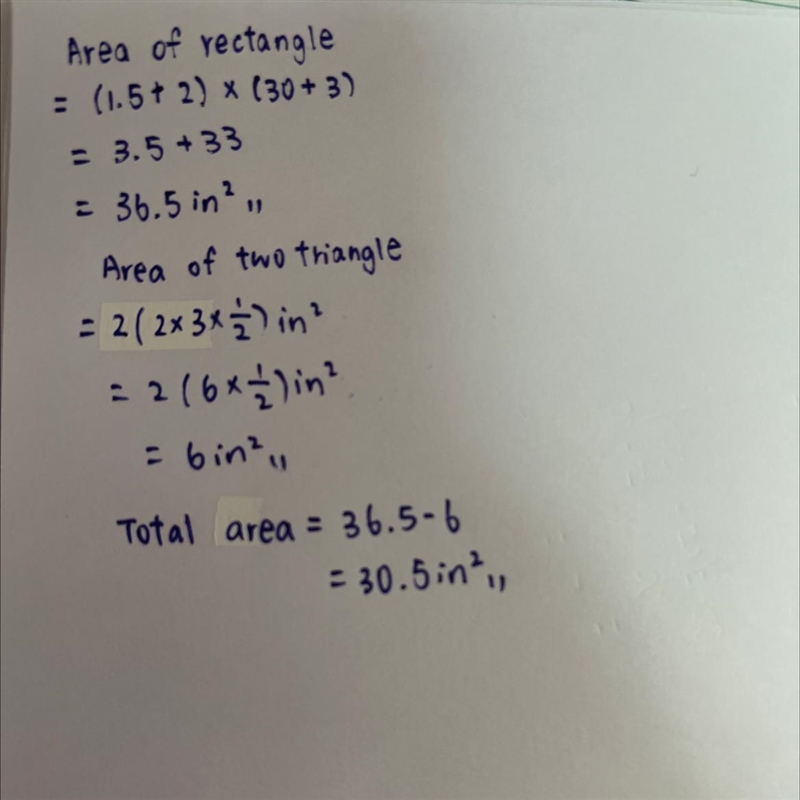 Area of rectangle
= (1.5+2) × (30+3)
= 3.5+33
= 36.5 in² ,,
Area of two triangle
= 2(2×3×1/2) in²
= 2(6×1/2) in²
= 6 in² ,,
Total area = 36.5-6
= 30.5 in² ,,